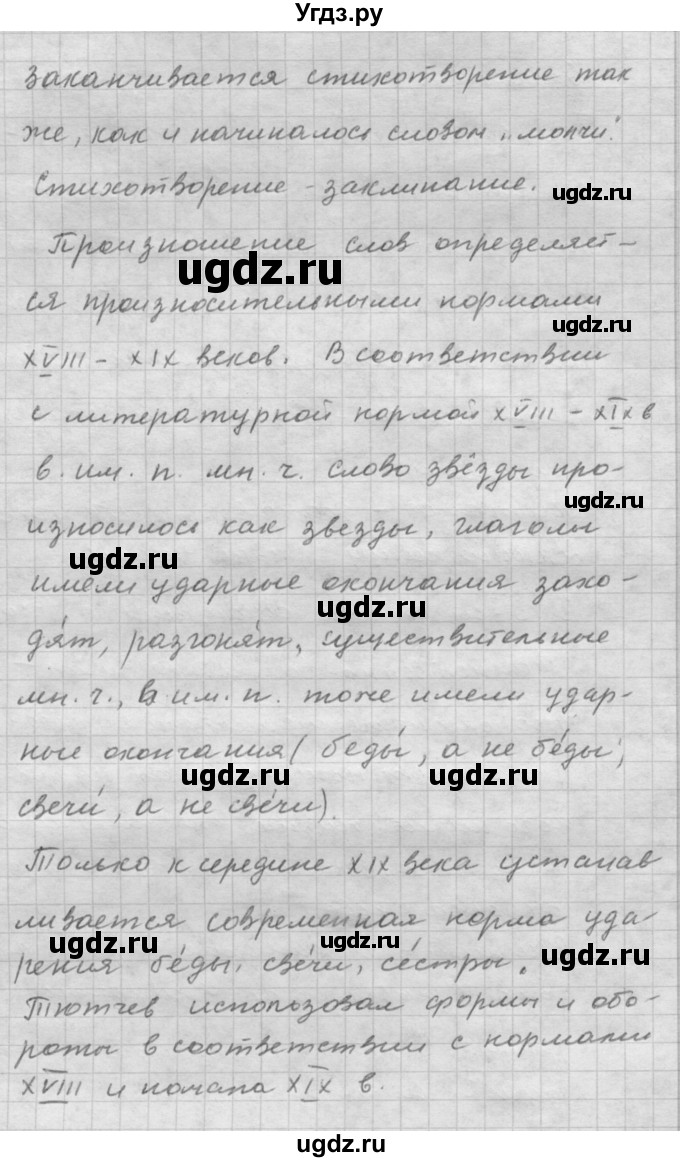 Угдз.ру
Заканчивается стихотворение так
же, как и начиналось словом „молчи".
Стихотворение - заклинание.
ugdz.ru
Произношение слов определяет-
ugdz.ru
ся произносительными нормами
ugdz.ru
XVIII - XIX веков. В соответствии
с литературной нормой XVIII - XIX в
в. им. п. мн. ч. слово звёзды про-
ugdz.ru
износилось как звезды, глаголы
ugdz.ru
имели ударные окончания захо-
ugdz.ru
дя́т, разгоня́т, существительные
мн. ч., в им. п. тоже имели удар-
ные окончания (беды́, а не бе́ды;
ugdz.ru
ugdz.ru
свечи́, а не све́чи).
Только к середине XIX века устанав
ливается современная норма уда-
ugdz.ru
ugdz.ru
рения бе́ды, све́чи, се́стры.
ugdz.ru
Тютчев использовал формы и обо-
роты в соответствии с нормами
XVIII и начала XIX в.
ugdz.ru